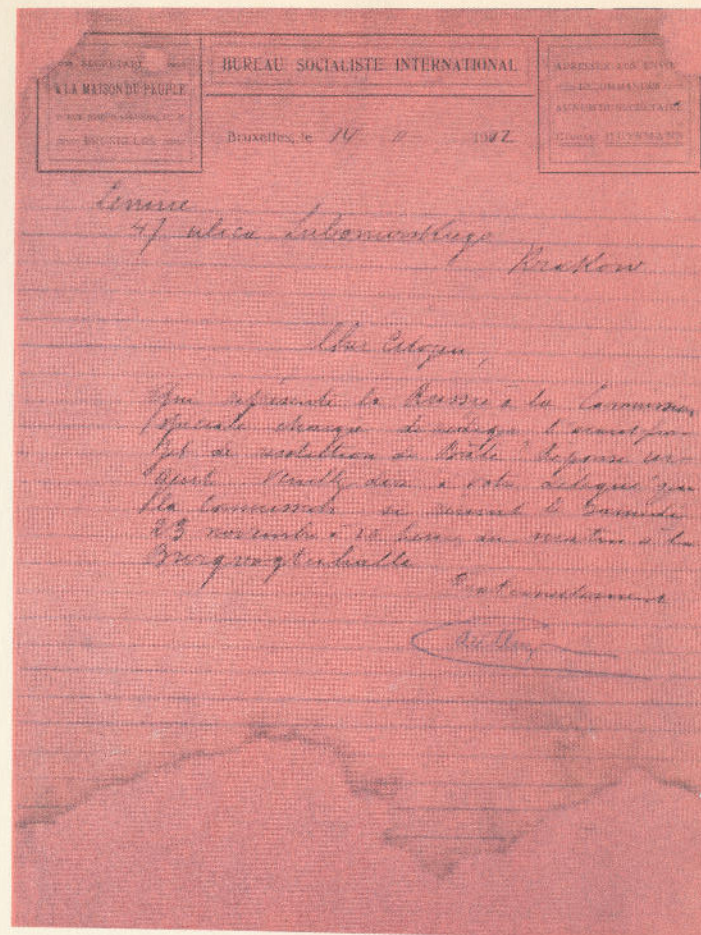 SECRÉTARIAT
A LA MAISON DU PEUPLE
BRUXELLES
BUREAU SOCIALISTE INTERNATIONAL
Bruxelles, le 14 11 1912
ADRESSER LES
RECOMMANDÉS
AU NOM DU SECRÉTAIRE
Camille HUYSMANS
Lenine
47 ulica Lubomirskiego
Krakow
Cher Citoyen,
Qui représente la Russie à la Commission
spéciale chargée de rédiger l'avant pro-
jet de résolution de Bâle? Réponse ur-
gente. Veuillez dire à votre délégué que
la Commission se réunit le Samedi
23 novembre à 10 heures du matin à la
Burgvogteihalle
Fraternellement